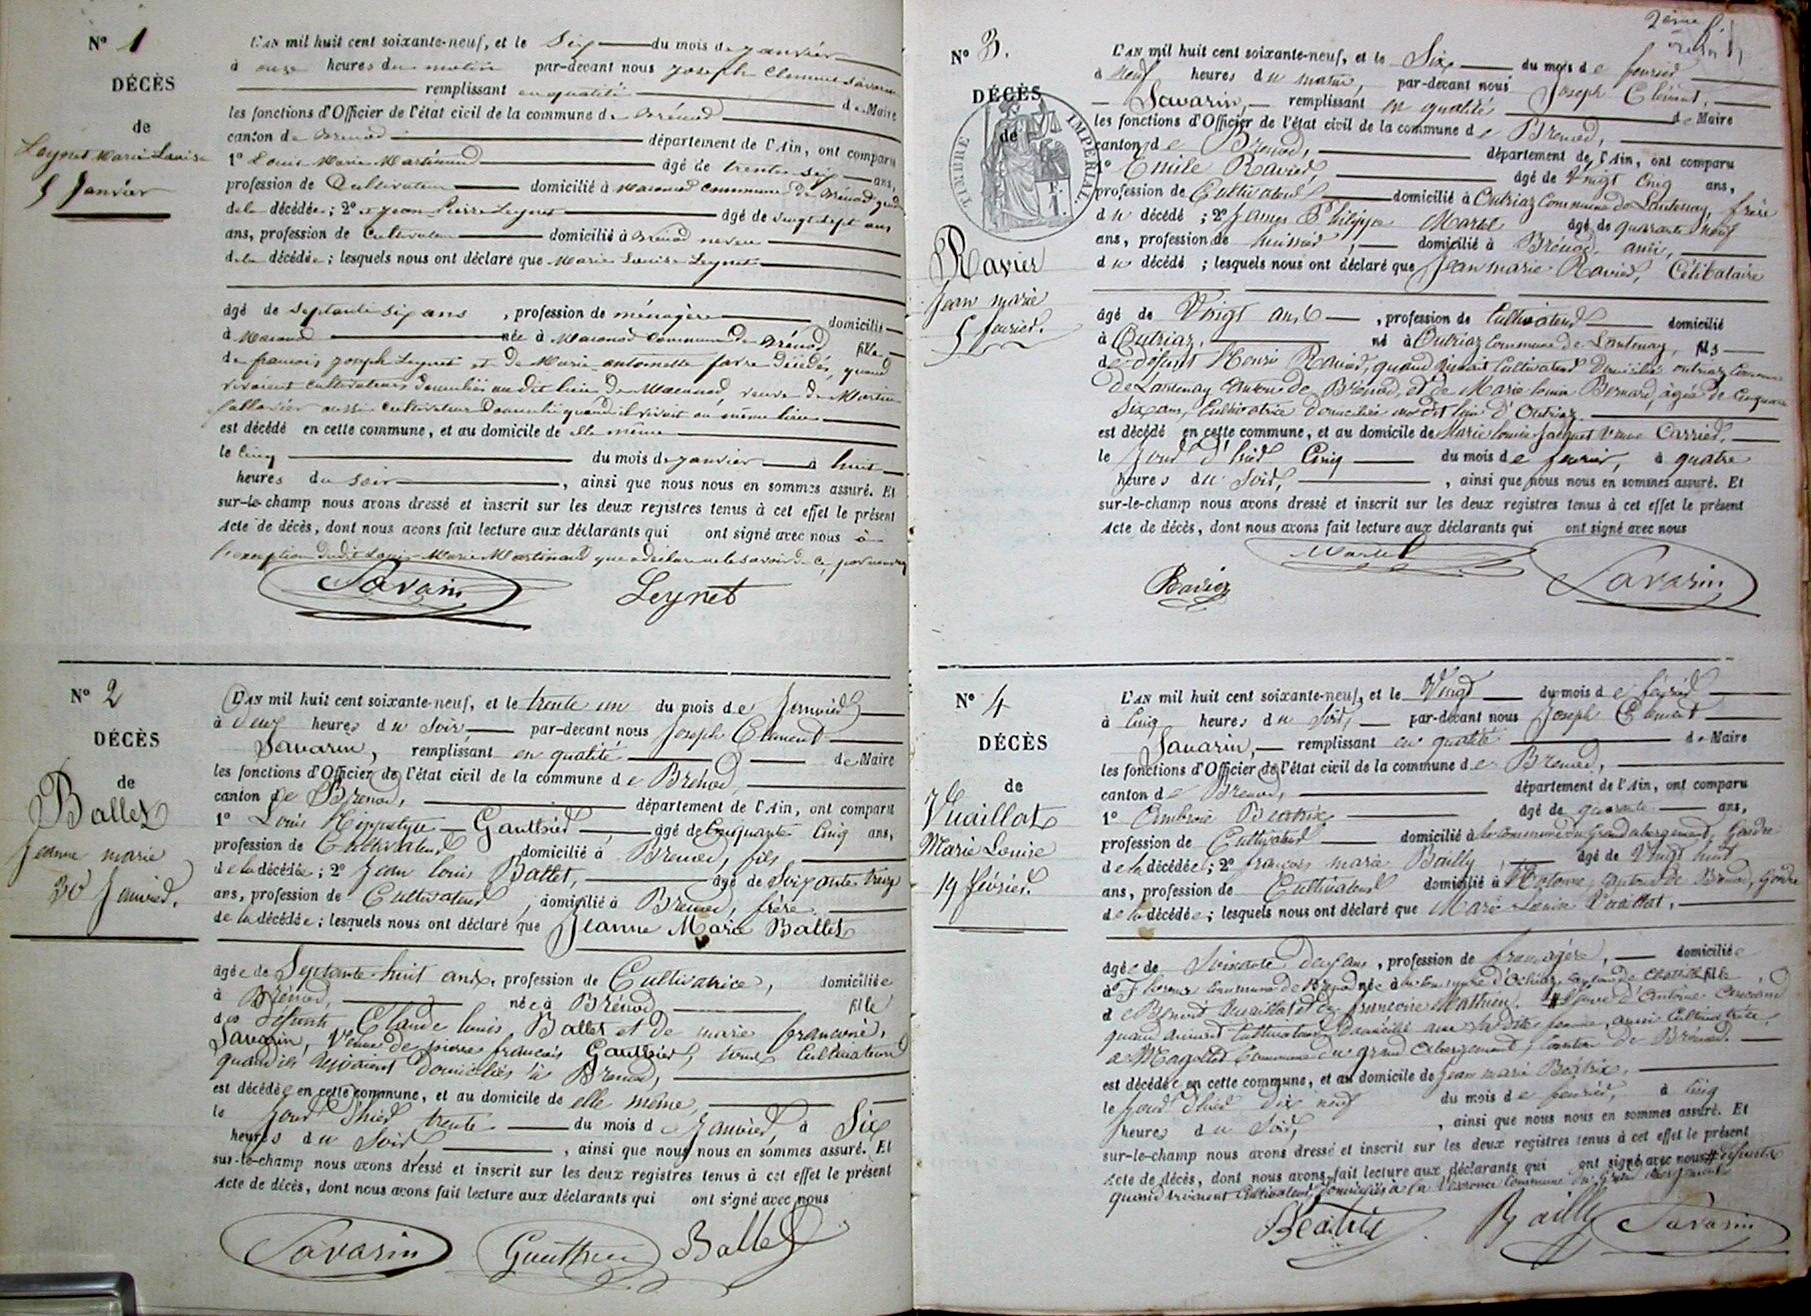 N° 1
DÉCÈS
de
Leynet Marie Louise
5 Janvier
L'AN mil huit cent soixante-neuf, et le Six du mois de janvier
à onze heures du matin par-devant nous Joseph Clement Savarin
remplissant en qualité de Maire
les fonctions d'Officier de l'état civil de la commune de Brénod
canton de Brénod département de l'Ain, ont comparu
1° Louis Marie Martinand âgé de trente six ans,
profession de Cultivateur domicilié à Macconod commune de Brénod
de la décédée; 2° et Jean Pierre Leynet âgé de vingt sept ans
ans, profession de Cultivateur domicilié à Brénod neveu
de la décédée; lesquels nous ont déclaré que Marie Louise Leynet
âgé de Septante six ans, profession de ménagère domicilié
à Macconod née à Macconod Commune de Brénod fille
de françois joseph Leynet et de Marie antoinette favre décédés, quand
vivaient cultivateurs domiciliés au dit lieu de Macconod, veuve de Martin
aussi cultivateur Domicilié quand il vivait au même lieu
est décédé en cette commune, et au domicile de elle même
le cinq du mois de janvier à huit
heures du soir, ainsi que nous nous en sommes assuré. Et
sur-le-champ nous avons dressé et inscrit sur les deux registres tenus à cet effet le présent
Acte de décès, dont nous avons fait lecture aux déclarants qui ont signé avec nous à
l'exception dudit Louis Marie Martinand que a déclaré ne le savoir de ce
Savarin Leynet
N° 2
DÉCÈS
de
Ballet
Jeanne marie
30 Janvier.
L'AN mil huit cent soixante-neuf, et le trente un du mois de Janvier
à deux heures du Soir par-devant nous Joseph Clément
Savarin, remplissant en qualité de Maire
les fonctions d'Officier de l'état civil de la commune de Brénod,
canton de Brénod, département de l'Ain, ont comparu
1° Louis Hippolyte Gauthier, âgé de Cinquante Cinq ans,
profession de Cultivateur domicilié à Brénod, fils
de la décédée; 2° Jean louis Ballet, âgé de Soixante treize
ans, profession de Cultivateur, domicilié à Brénod, frère
de la décédée; lesquels nous ont déclaré que Jeanne Marie Ballet
âgée de Septante huit ans, profession de Cultivatrice, domiciliée
à Brénod, née à Brénod fille
des défunts Claude louis Ballet et de marie françoise
Savarin, Veuve de pierre françois Gauthier, tous Cultivateurs
quand ils vivaient domiciliés à Brénod,
est décédée en cette commune, et au domicile de elle même,
le jour d'hier trente du mois de Janvier, à Six
heures du Soir, ainsi que nous nous en sommes assuré. Et
sur-le-champ nous avons dressé et inscrit sur les deux registres tenus à cet effet le présent
Acte de décès, dont nous avons fait lecture aux déclarants qui ont signé avec nous
Savarin Gauthier Ballet
2ème
N° 3.
DÉCÈS
de
TIMBRE IMPÉRIAL
1 F.
Ravier
Jean marie
5 fevrier.
L'AN mil huit cent soixante-neuf, et le Six du mois de fevrier
à neuf heures du matin, par-devant nous Joseph Clément,
Savarin, remplissant en qualité de Maire
les fonctions d'Officier de l'état civil de la commune de Brenod,
canton de Brenod, département de l'Ain, ont comparu
1° Emile Ravier âgé de Vingt Cinq ans,
profession de Cultivateur domicilié à Outriaz Commune de Lantenay, frère
du décédé; 2° James Philippe Martel âgé de quarante neuf
ans, profession de huissier, domicilié à Brénod, ami,
du décédé; lesquels nous ont déclaré que Jean marie Ravier, Célibataire
âgé de Vingt ans, profession de Cultivateur domicilié
à Outriaz, né à Outriaz Commune de Lantenay, fils
de défunt Henri Ravier, quand vivait Cultivateur Domicilié outriaz Commune
de Lantenay Canton de Brénod, et de Marie louise Bernard, âgée de Cinquante
Six ans, Cultivatrice domiciliée au dit lieu d'Outriaz.
est décédé en cette commune, et au domicile de Marie louise Jacquet Veuve Carrier.
le Jour d'hier Cinq du mois de fevrier, à quatre
heures du Soir, ainsi que nous nous en sommes assuré. Et
sur-le-champ nous avons dressé et inscrit sur les deux registres tenus à cet effet le présent
Acte de décès, dont nous avons fait lecture aux déclarants qui ont signé avec nous
Martel
Ravier Savarin
N° 4
DÉCÈS
de
Vuaillat
Marie Louise
19 février.
L'AN mil huit cent soixante-neuf, et le Vingt du mois de février
à Cinq heures du Soir, par-devant nous Joseph Clément
Savarin, remplissant en qualité de Maire
les fonctions d'Officier de l'état civil de la commune de Brenod,
canton de Brenod, département de l'Ain, ont comparu
1° Ambroise Béatrix âgé de quarante ans,
profession de Cultivateur domicilié à la commune du Grand abergement, Gendre
de la décédée; 2° françois marie Bailly, âgé de Vingt huit
ans, profession de Cultivateur domicilié à Hotonne, Canton de Brenod, Gendre
de la décédée; lesquels nous ont déclaré que Marie Louise Vuaillat,
âgée de Soixante deux ans, profession de fromagère, domiciliée
Commune de Brenod née à la commune d'Ochiaz, Canton de Chatillon fille
de Benoit Vuaillat et de françoise Mathieu. # Veuve d'Antoine
quand vivant Cultivateur, Domicilié avec Sa dite femme, aussi Cultivatrice,
à Commune du grand Abergement, Canton de Brénod.
est décédée en cette commune, et au domicile de Jean marie Béatrix,
le Jour d'hier dix neuf du mois de fevrier, à Cinq
heures du Soir, ainsi que nous nous en sommes assuré. Et
sur-le-champ nous avons dressé et inscrit sur les deux registres tenus à cet effet le présent
Acte de décès, dont nous avons fait lecture aux déclarants qui ont signé avec nous # défunts
quand vivaient Cultivateurs, Domiciliés à la Commune du Grand abergement
Béatrix Bailly Savarin